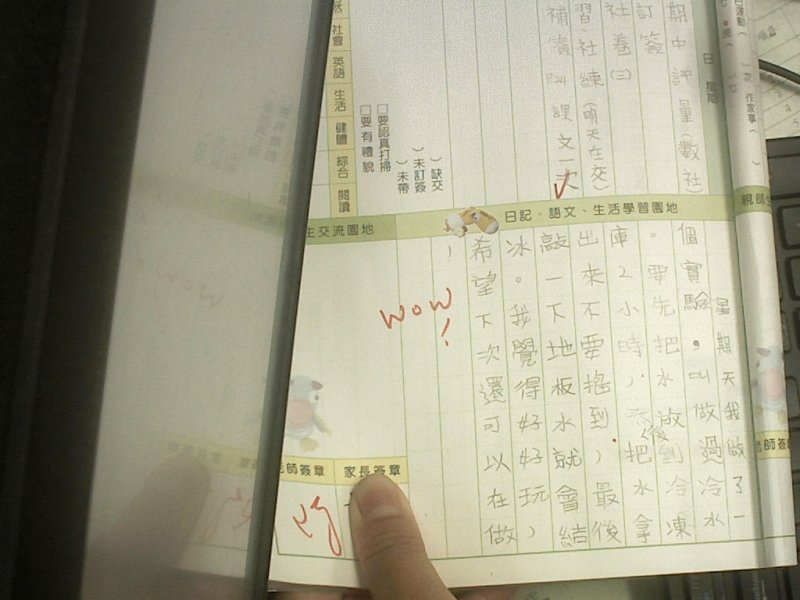 日 星期
期中評量(數社)
訂簽
社卷(三)
習.社練(明天在交)
補寫P24課文一次
□要認真打掃
□要有禮貌
)缺交
)未訂簽
)未帶
社會
英語
生活
健體
綜合
閱讀
作家事(
日記、語文、生活學習園地
生交流園地
星期天我做了一
個實驗,叫做過冷水
。要先把水放到冷凍
庫2小時)然後把水拿
出來不要搖到)最後
敲一下地板水就會結
冰。我覺得好好玩)
希望下次還可以在做
!
wow!
老師簽章
家長簽章